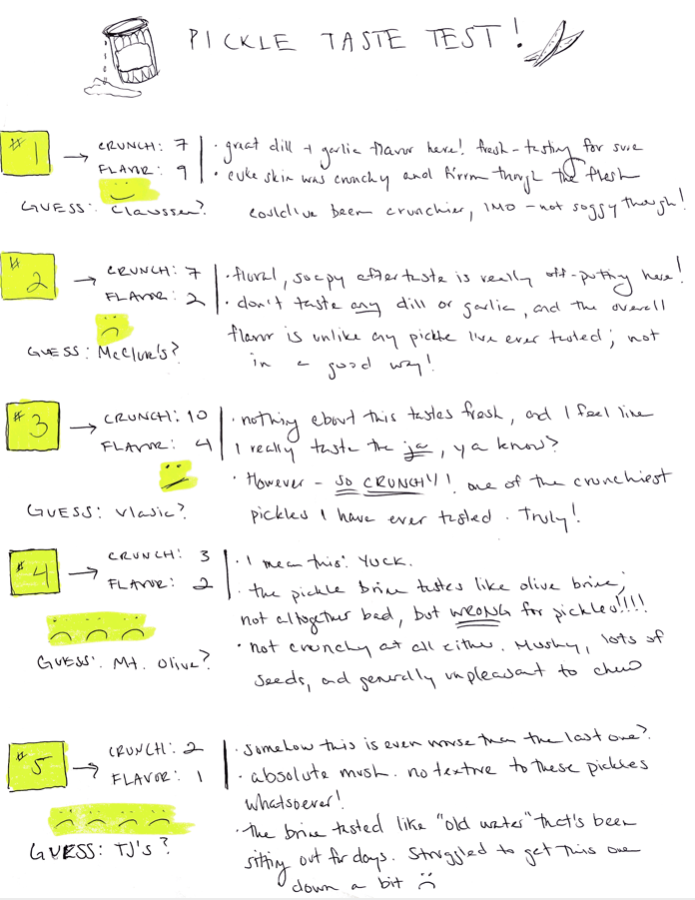 PICKLE TASTE TEST!
#1 → CRUNCH: 7
FLAVOR: 9
GUESS: Claussen?
· great dill + garlic flavor here! fresh-tasting for sure
· cuke skin was crunchy and firm though the flesh
could've been crunchier, IMO - not soggy though!
#2 → CRUNCH: 7
FLAVOR: 2
GUESS: McClure's?
· floral, soapy aftertaste is really off-putting here!
· don't taste any dill or garlic, and the overall
flavor is unlike any pickle I've ever tasted; not
in a good way!
#3 → CRUNCH: 10
FLAVOR: 4
GUESS: Vlasic?
· nothing about this tastes fresh, and I feel like
I really taste the jar, ya know?
· However - SO CRUNCHY!! one of the crunchiest
pickles I have ever tasted. Truly!
#4 → CRUNCH: 3
FLAVOR: 2
GUESS: Mt. Olive?
· I mean this: YUCK.
· the pickle brine tastes like olive brine;
not altogether bad, but WRONG for pickles!!!!
· not crunchy at all either. Mushy, lots of
seeds, and generally unpleasant to chew
#5 → CRUNCH: 2
FLAVOR: 1
GUESS: TJ's?
· Somehow this is even worse than the last one?
· absolute mush. no texture to these pickles
whatsoever!
· The brine tasted like "old water" that's been
sitting out for days. Struggled to get this one
down a bit ☹